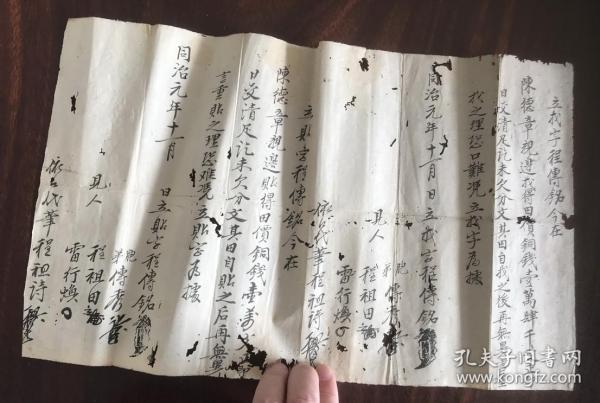 立找字程傳銘今在
陳德章親邊找得田價銅錢壹萬肆千文
日文清足訖未欠分文其田自找之後再無異
找之理恐口難憑立找字為據
同治元年十一月 日立找字程傳銘
胞弟 傳秀
見人 程祖田
雷行煥
依口代筆程祖詩
立貼字程傳銘今在
陳德章親邊貼得田價銅錢壹萬
日文清足訖未欠分文其田自貼之后再無異
言重貼之理恐难凭立貼字為據
同治元年十一月 日立貼字程傳銘
胞弟 傳秀
見人 程祖田
雷行煥
依口代筆程祖詩
孔夫子旧书网
www.kongfz.com